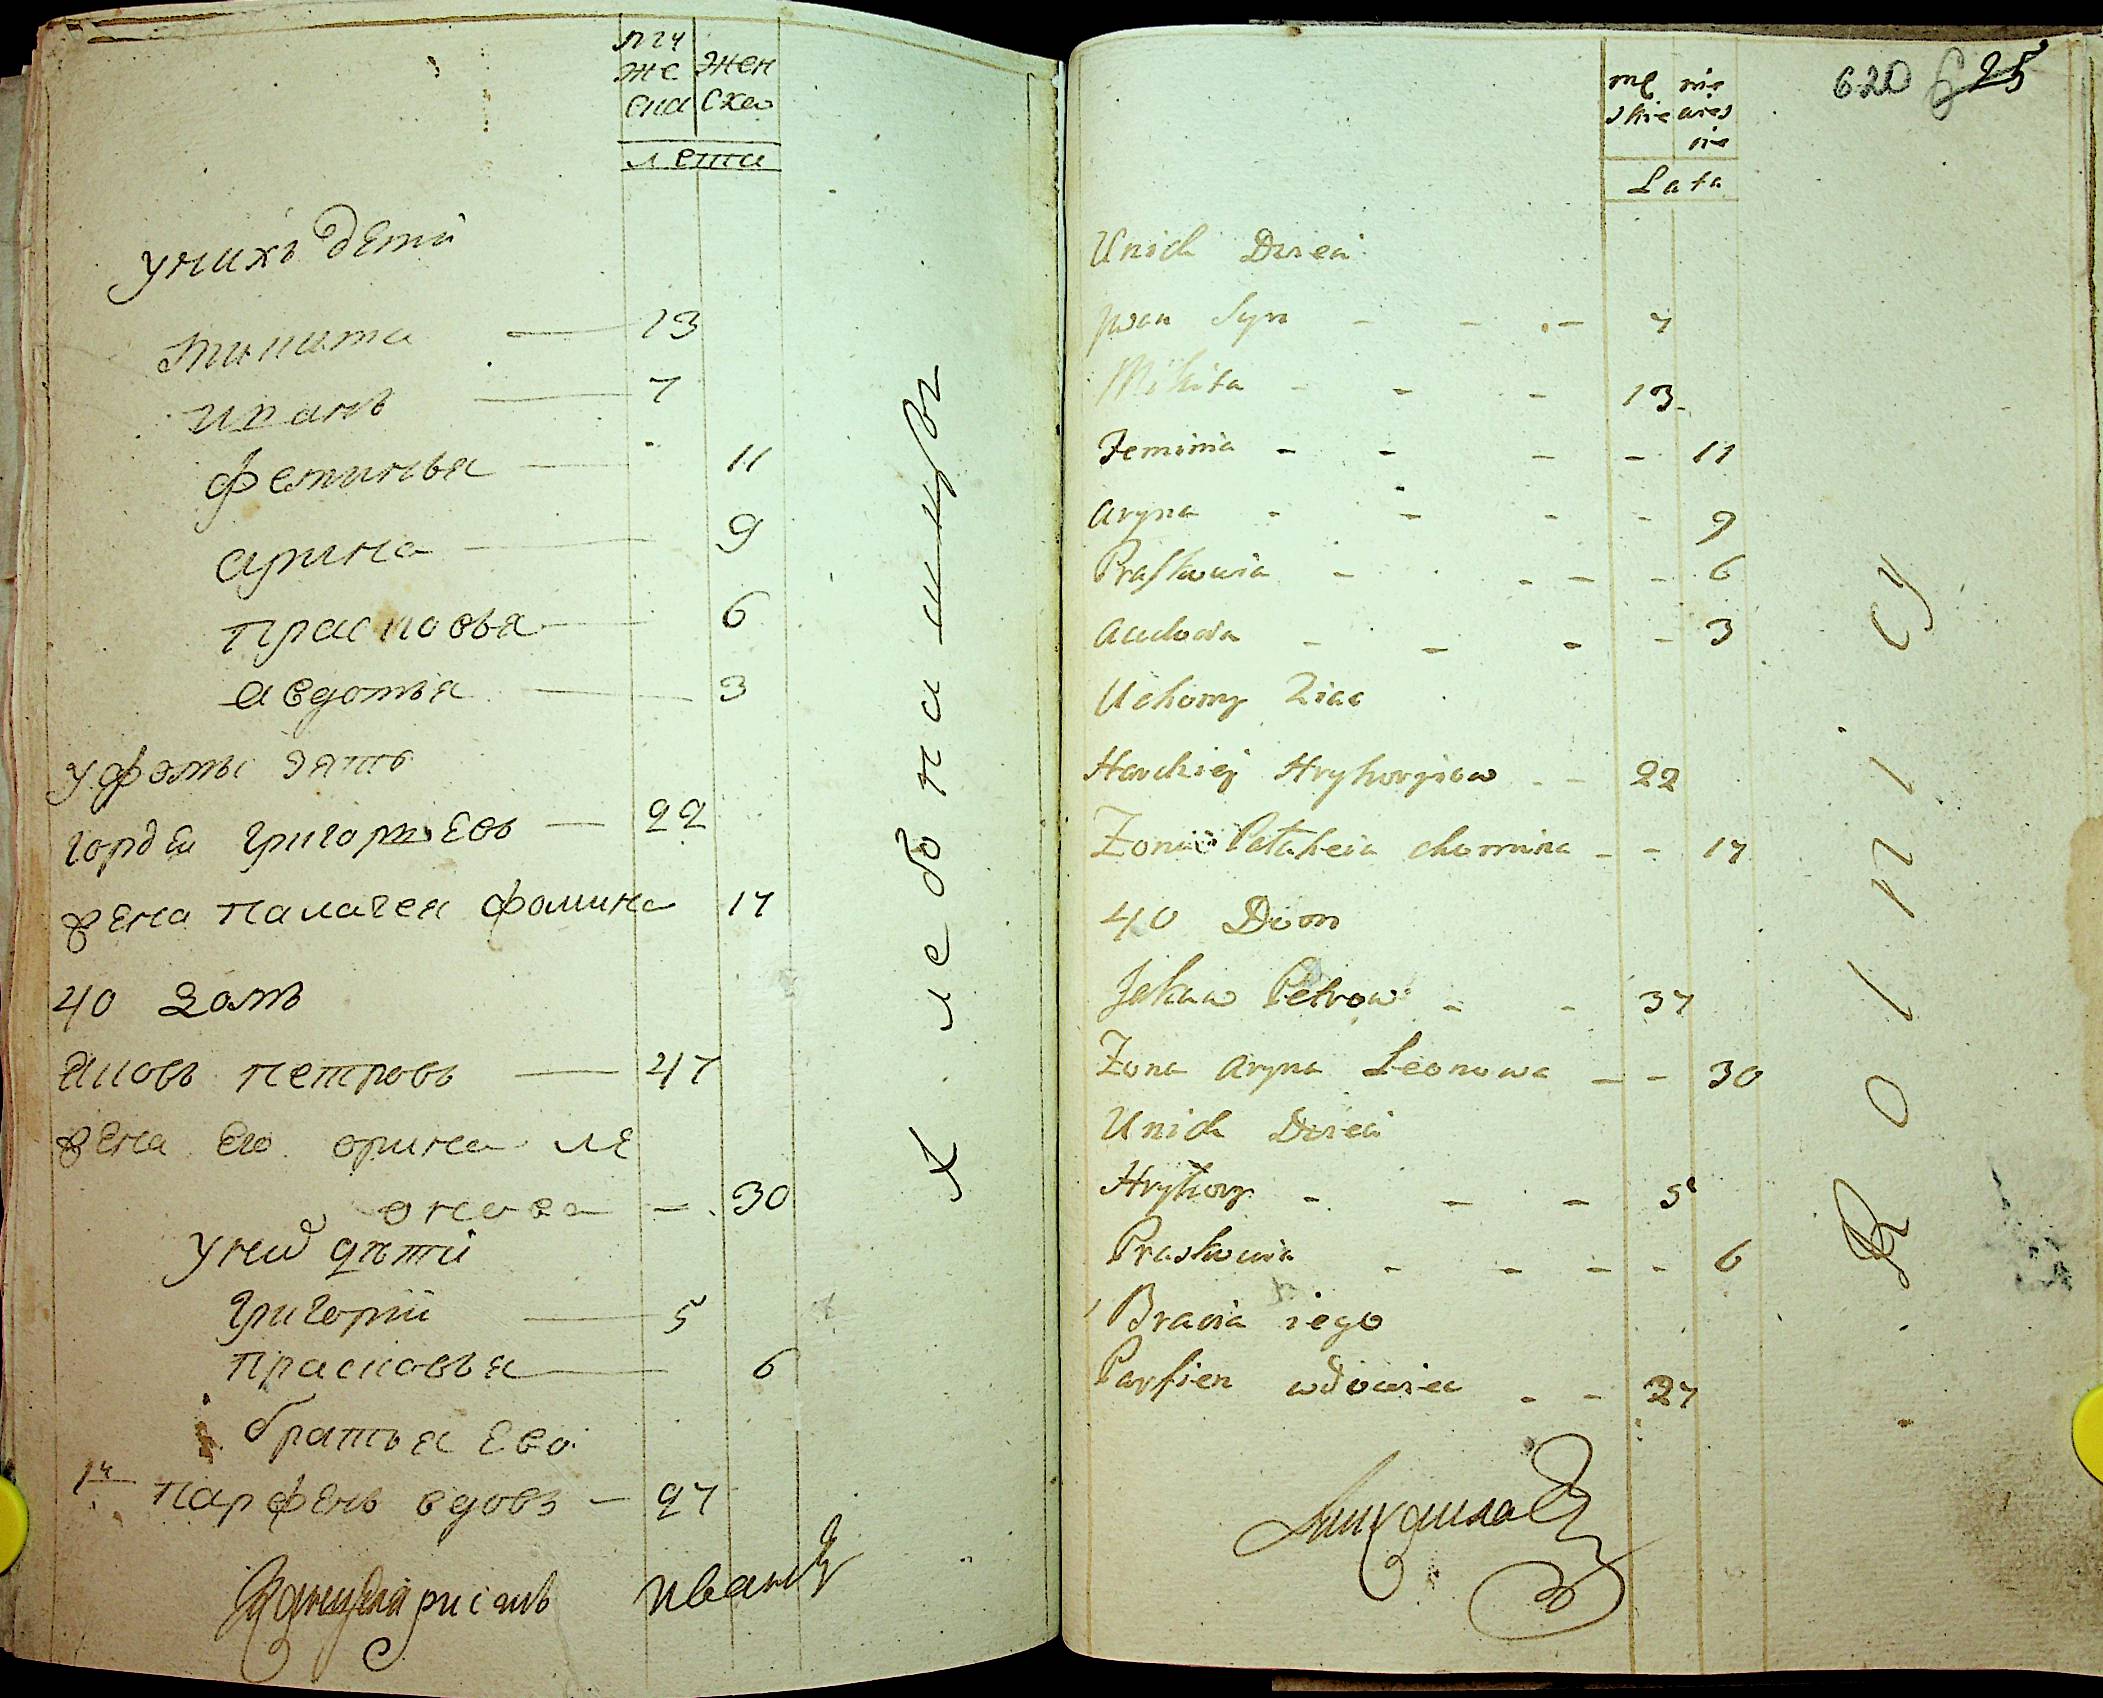 му жен
же ска
ска
лета
унихъ дети
микита — 13
иванъ — 7
феминья — 11
арина — 9
прасковья — 6
авдотья — 3
уфомы зять
гордѣи григориевъ — 22
жена палагея фомина 17
40 домъ
яковъ петровъ — 47
жена его орина ле
онова — 30
уних дѣти
григории — 5
прасковья — 6
братья ево
1й парфенъ вдовъ — 27
Канцеляристъ Иванъ
хлебопашцы
mę nie
skie wies
nie
Lata
620 625
Unich Dzieci
Jwan Syn - - - 7
Mikita - - - 13
Feminia - - - - 11
Aryna - - - - 9
Praskowia - - - - 6
Audocia - - - - 3
Uchomy Ziac
Hardziej Hryhoryiow - - 22
Zona Palaheia chomina - - 17
40 Dom
Jakaw Petrow - - 37
Zona Aryna Leonowa - - 30
Unich Dzieci
Hryhory - - - 5
Praskowia - - - - 6
Bracia iego
Parfien wdowiec - - 27
Михаила
Rolnicy